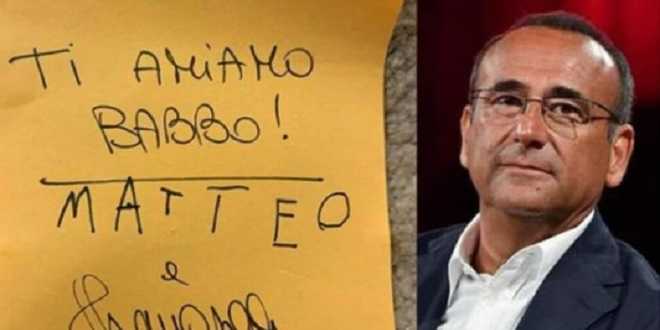 TI AMIAMO
BABBO!
MATTEO
e